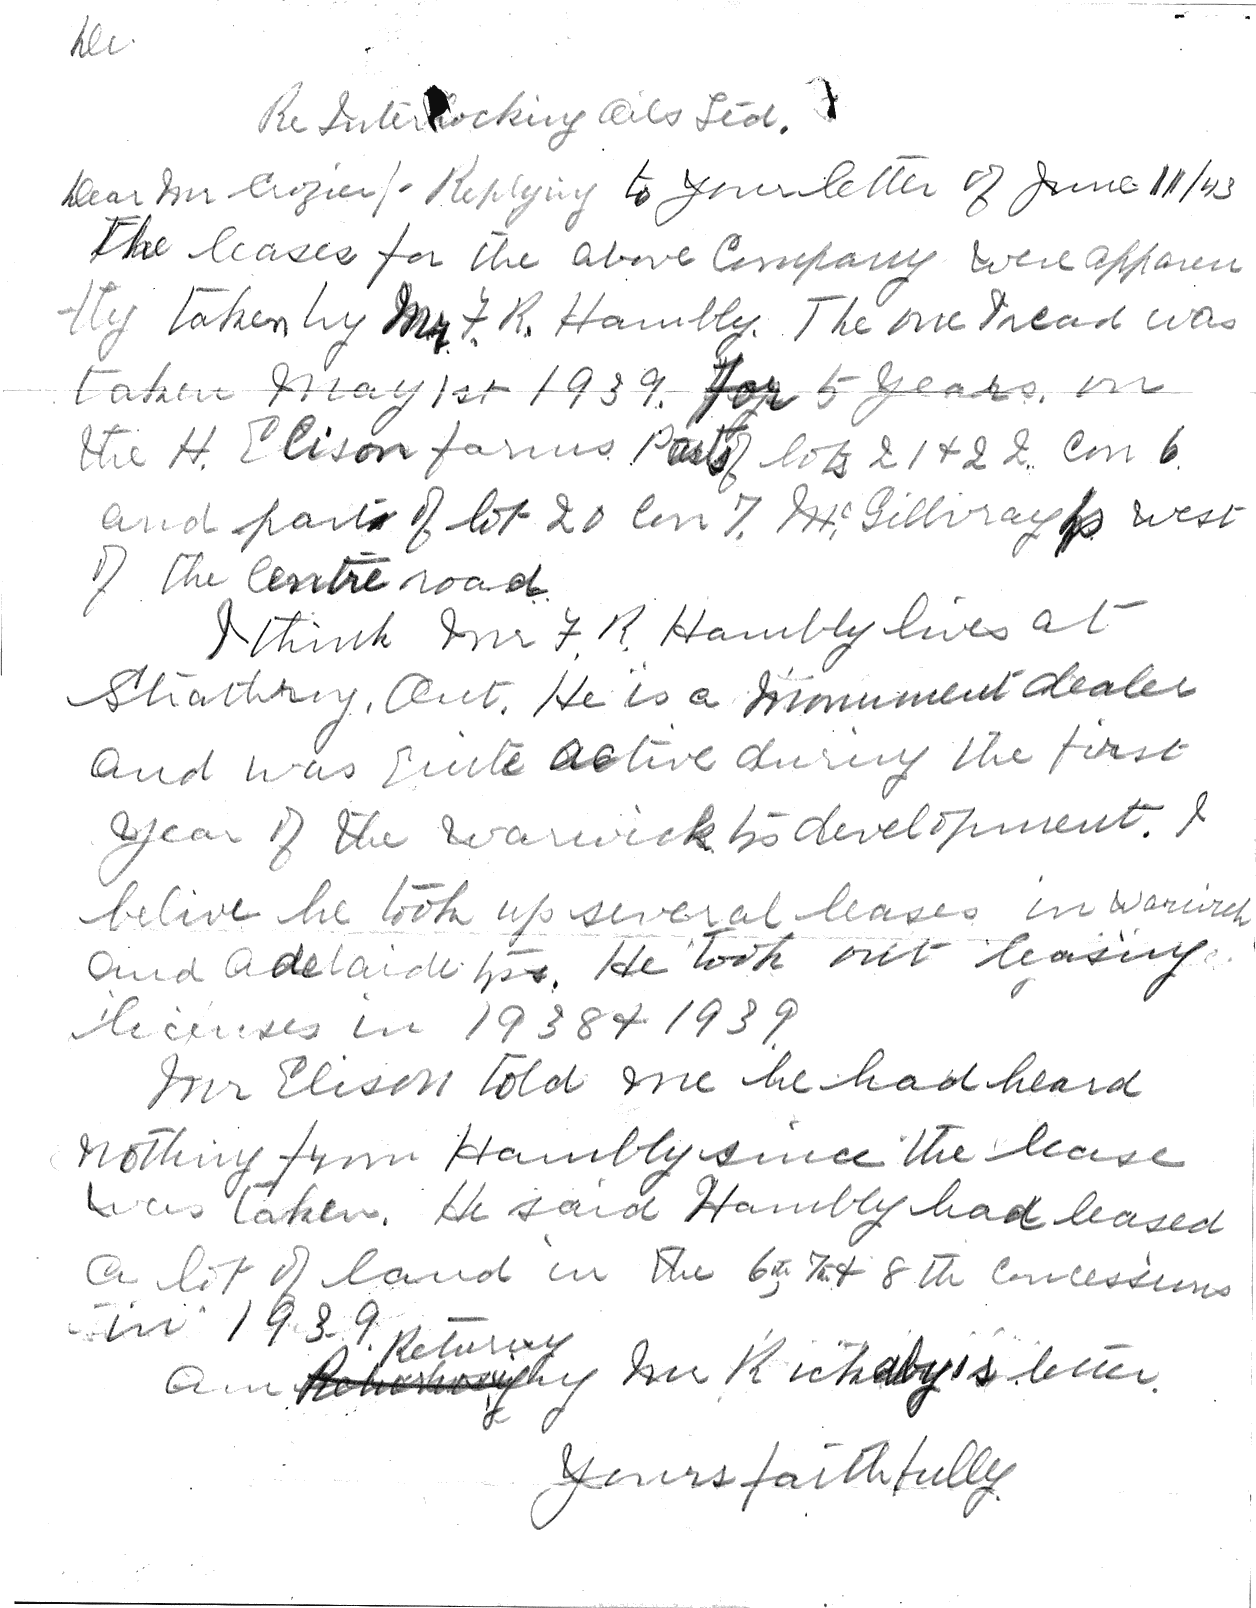 De
Re Interlocking Oils Ltd.
Dear Mr Crozier/- Replying to your letter of June 11/43
The leases for the above Company were apparen
tly taken by Mr F. R. Hambly. The one I read was
taken May 1st 1939. for 5 years. on
the H. Elison farms Parts of lots 21 & 22. Con 6.
and parts of lot 20 Con 7. McGillivray tp west
of the Centre road.
I think Mr F. R. Hambly lives at
Strathroy. Ont. He is a Monument dealer
and was quite active during the first
year of the Warwick tp's development. I
belive he took up several leases in Warwick
and Adelaide tps. He took out leasing
licenses in 1938 & 1939.
Mr Elison told me he had heard
nothing from Hambly since the lease
was taken. He said Hambly had leased
a lot of land in the 6th, 7th & 8th concessions
in 1939.
Returng
am by Mr Rickaby's letter.
Yours faithfully.